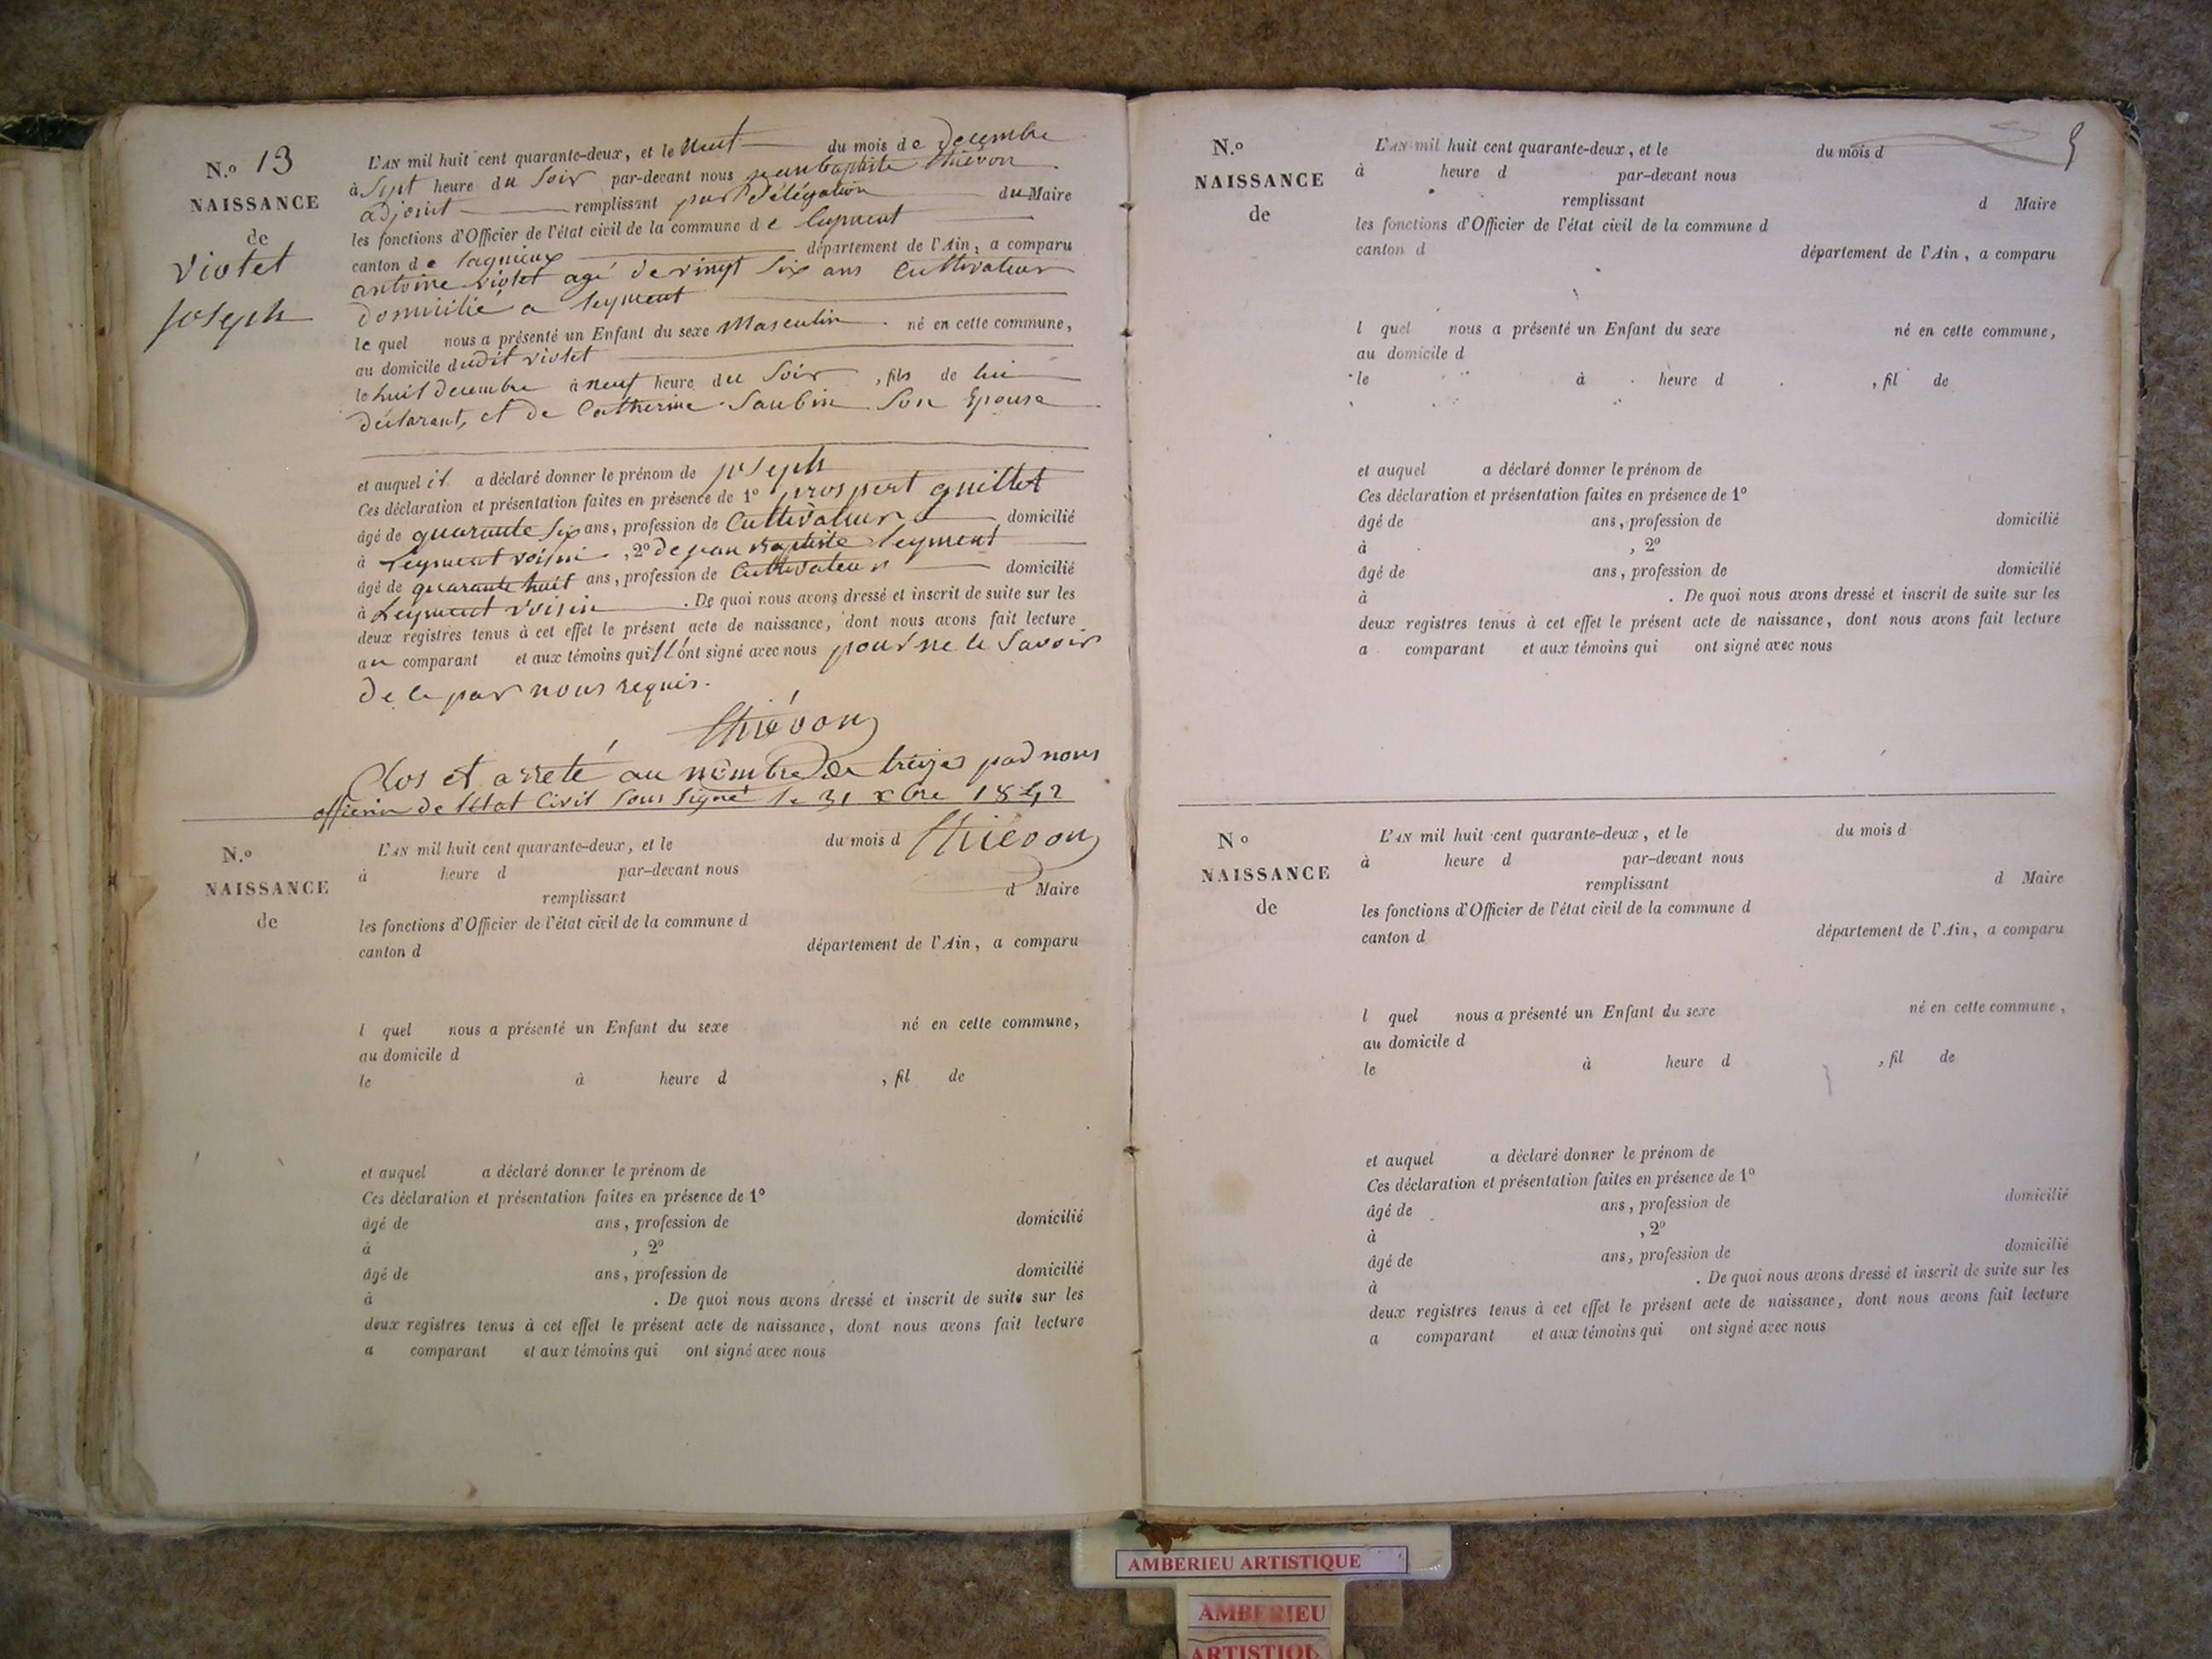 N.º 13
NAISSANCE
de
Viotet
joseph
L'AN mil huit cent quarante-deux, et le neuf du mois de decembre
à Sept heure du Soir par-devant nous jean baptiste thiévon
adjoint remplissant par délégation du Maire
les fonctions d'Officier de l'état civil de la commune de leyment
canton de lagnieux département de l'Ain, a comparu
antoine viotet agé de vingt Six ans Cultivateur
domicilié a leyment
le quel nous a présenté un Enfant du sexe Masculin né en cette commune,
au domicile dudit viotet
le huit decembre à neuf heure du Soir, fils de lui
déclarant, et de Catherine Saubin Son Epouse
et auquel il a déclaré donner le prénom de joseph
Ces déclaration et présentation faites en présence de 1º prospert guillet
âgé de quarante Six ans, profession de Cultivateur domicilié
à Leyment voisin, 2º de jean Baptiste leyment
âgé de quarante huit ans, profession de Cultivateur domicilié
à Leyment voisin. De quoi nous avons dressé et inscrit de suite sur les
deux registres tenus à cet effet le présent acte de naissance, dont nous avons fait lecture
au comparant et aux témoins qui ont signé avec nous pour ne le Savoir
de ce par nous requis.
thiévon
Clos et arreté au nombre de treizes par nous
officier de l'état Civil Sous Signé le 31 xbre 1842
thiévon
N.º
NAISSANCE
de
L'AN mil huit cent quarante-deux, et le du mois d
à heure d par-devant nous
remplissant d Maire
les fonctions d'Officier de l'état civil de la commune d
canton d département de l'Ain, a comparu
l quel nous a présenté un Enfant du sexe né en cette commune,
au domicile d
le à heure d , fil de
et auquel a déclaré donner le prénom de
Ces déclaration et présentation faites en présence de 1º
âgé de ans, profession de domicilié
à , 2º
âgé de ans, profession de domicilié
à . De quoi nous avons dressé et inscrit de suite sur les
deux registres tenus à cet effet le présent acte de naissance, dont nous avons fait lecture
a comparant et aux témoins qui ont signé avec nous
N.º
NAISSANCE
de
L'AN mil huit cent quarante-deux, et le du mois d
à heure d par-devant nous
remplissant d Maire
les fonctions d'Officier de l'état civil de la commune d
canton d département de l'Ain, a comparu
l quel nous a présenté un Enfant du sexe né en cette commune,
au domicile d
le à heure d , fil de
et auquel a déclaré donner le prénom de
Ces déclaration et présentation faites en présence de 1º
âgé de ans, profession de domicilié
à , 2º
âgé de ans, profession de domicilié
à . De quoi nous avons dressé et inscrit de suite sur les
deux registres tenus à cet effet le présent acte de naissance, dont nous avons fait lecture
a comparant et aux témoins qui ont signé avec nous
Nº
NAISSANCE
de
L'AN mil huit cent quarante-deux, et le du mois d
à heure d par-devant nous
remplissant d Maire
les fonctions d'Officier de l'état civil de la commune d
canton d département de l'Ain, a comparu
l quel nous a présenté un Enfant du sexe né en cette commune,
au domicile d
le à heure d , fil de
et auquel a déclaré donner le prénom de
Ces déclaration et présentation faites en présence de 1º
âgé de ans, profession de domicilié
à , 2º
âgé de ans, profession de domicilié
à . De quoi nous avons dressé et inscrit de suite sur les
deux registres tenus à cet effet le présent acte de naissance, dont nous avons fait lecture
a comparant et aux témoins qui ont signé avec nous
AMBERIEU ARTISTIQUE
AMBERIEU